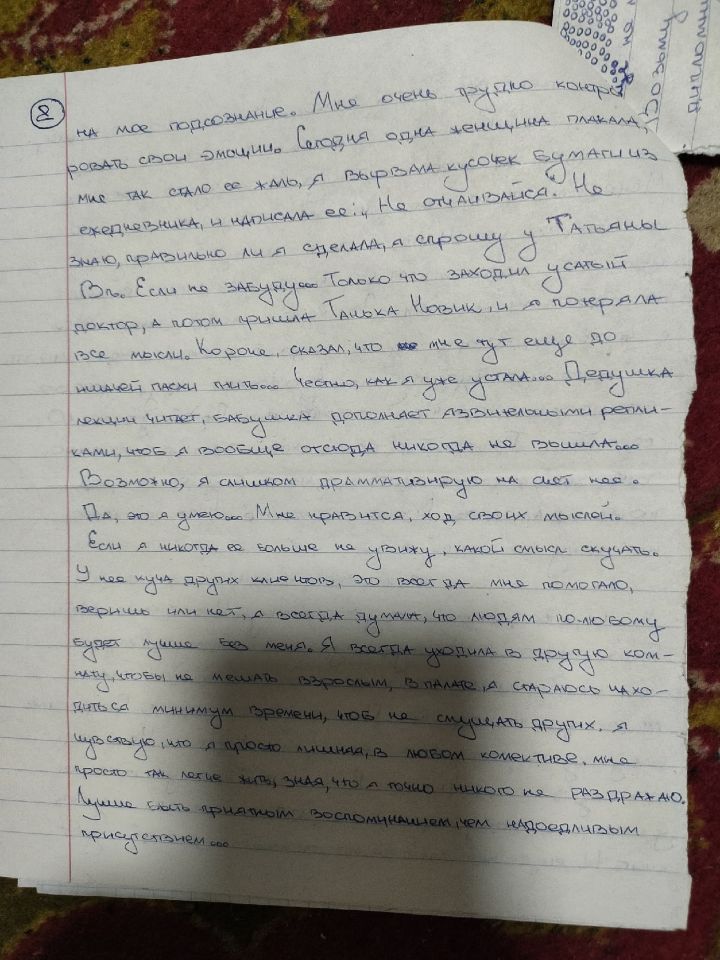 8
на мое подсознание. Мне очень трудно контро
ровать свои эмоции. Сегодня одна женщина плакала,
мне так стало ее жаль, я вырвала кусочек бумаги из
ежедневника, и написала ее: „Не отчаивайся". Не
знаю, правильно ли я сделала, я спрошу у Татьяны
Вл. Если не забуду... Только что заходил усатый
доктор, а потом пришла Танька Новик, и я потеряла
все мысли. Короче, сказал, что мне тут еще до
пасхи пить... Честно, как я уже устала... Дедушка
лекции читает, бабушка дополняет язвительными репли-
ками, чтоб я вообще отсюда никогда не вышла...
Возможно, я слишком драмматизирую на счет нее.
Да, это я умею... Мне нравится, ход своих мыслей.
Если я никогда ее больше не увижу, какой смысл скучать.
У нее куча других клиентов, это всегда мне помогало,
веришь или нет, я всегда думала, что людям по-любому
будет лучше без меня. Я всегда уходила в другую ком-
нату, чтобы не мешать взрослым, в палате, я стараюсь нахо-
диться минимум времени, чтоб не смущать других. я
чувствую, что я просто лишняя, в любом колективе. мне
просто так легче жить, зная, что я точно никого не раздражаю.
Лучше быть приятным воспоминанием, чем надоедливым
присутствием...
на
Возьму